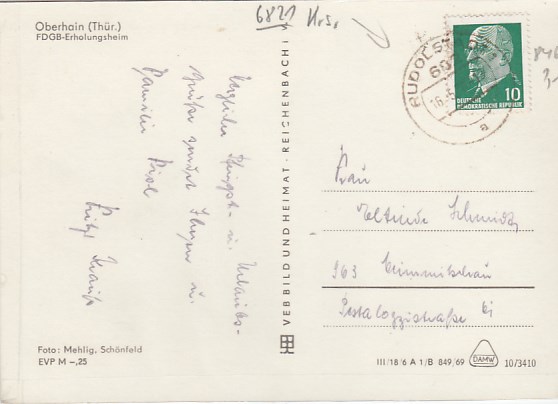 Oberhain (Thür.)
FDGB-Erholungsheim
6821 Krs.
RUDOLST
10
DEUTSCHE
DEMOKRATISCHE REPUBLIK
Herzliche Pfingst- u. Urlaubs-
grüße sendet Ihnen u.
Familie
VEB BILD UND HEIMAT · REICHENBACH i. V.
Frau
Schmidt
963 Crimmitschau
Pestalozzistraße 61
Foto: Mehlig, Schönfeld
EVP M –,25
III/18/6 A 1/B 849/69
DAMW
10/3410